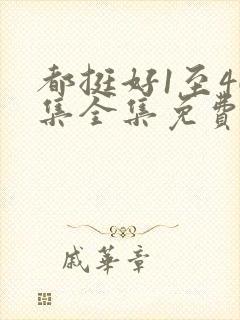 都挺好1至4
集全集免費
戚華章